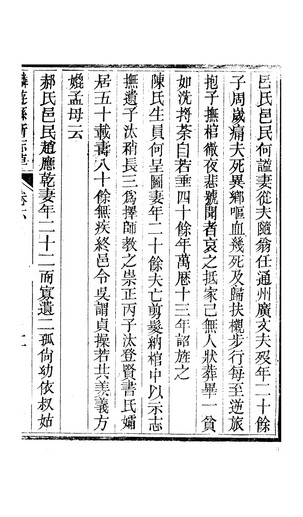 邑民何謐妻從夫隨翁任通州廣文夫歿年二十餘
子周歲痛夫死異鄉嘔血幾死及歸扶櫬步行每至逆旅
抱子撫棺徹夜悲號聞者哀之抵家已無人狀葬畢一貧
如洗撏荼自若垂四十餘年萬曆十三年詔旌之
陳氏生員何呈圖妻年二十餘夫亡剪髮納棺中以示志
撫遺子汰稍長三為擇師教之崇正丙子汰登賢書氏孀
居五十載壽八十餘無疾終邑令吳謂貞操若共姜義方
媲孟母云
郝氏邑民趙應乾妻年二十二而寡遺二孤尚幼依叔姑